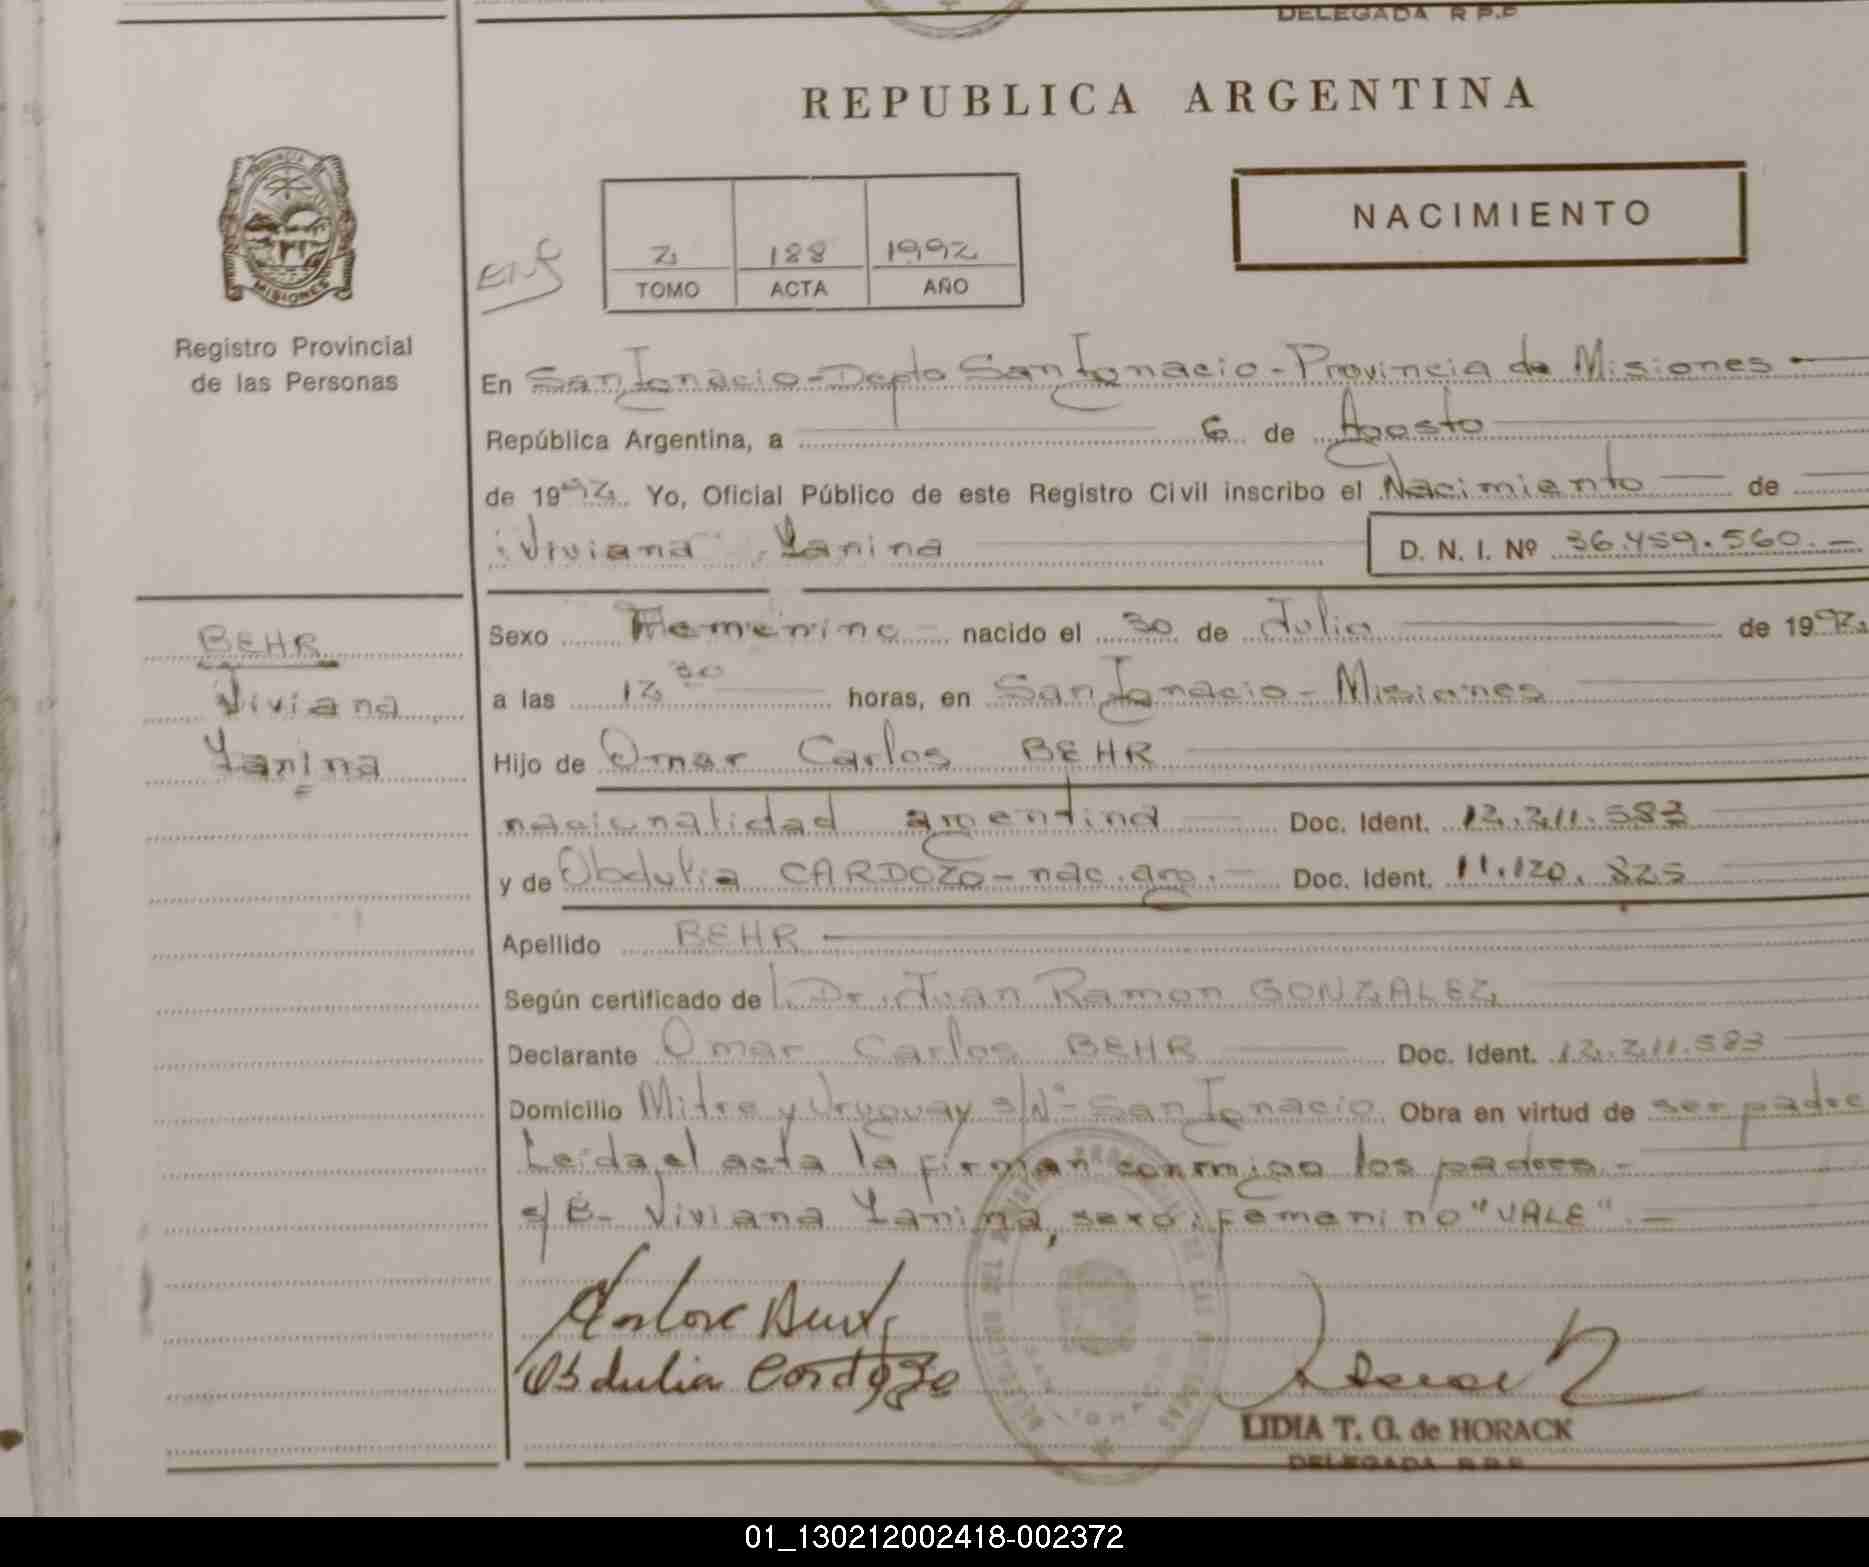 DELEGADA R P.P
REPUBLICA ARGENTINA
NACIMIENTO
PROVINCIA
MISIONES
Registro Provincial
de las Personas
2 188 1992
TOMO ACTA AÑO
En San Ignacio - Depto San Ignacio - Provincia de Misiones -
República Argentina, a 6 de Agosto
de 1992 Yo, Oficial Público de este Registro Civil inscribo el Nacimiento de
Viviana Yanina D. N. I. Nº 36.459.560.-
BEHR
Viviana
Yanina
Sexo Femenino nacido el 30 de Julio de 1992
a las 12 30 horas, en San Ignacio - Misiones
Hijo de Omar Carlos BEHR
nacionalidad argentina Doc. Ident. 12.211.583
y de Obdulia CARDOZO - nac. arg. - Doc. Ident. 11.120.825
Apellido BEHR
Según certificado de Dr. Juan Ramon GONZALEZ
Declarante Omar Carlos BEHR Doc. Ident. 12.211.583
Domicilio Mitre y Uruguay s/Nº - San Ignacio Obra en virtud de ser padre
Leida el acta la firman conmigo los padres -
s/B- Viviana Yanina, sexo: femenino "VALE". -
Obdulia Cardozo
LIDIA T. G. de HORACK
DELEGADA R.P.P
01_130212002418-002372